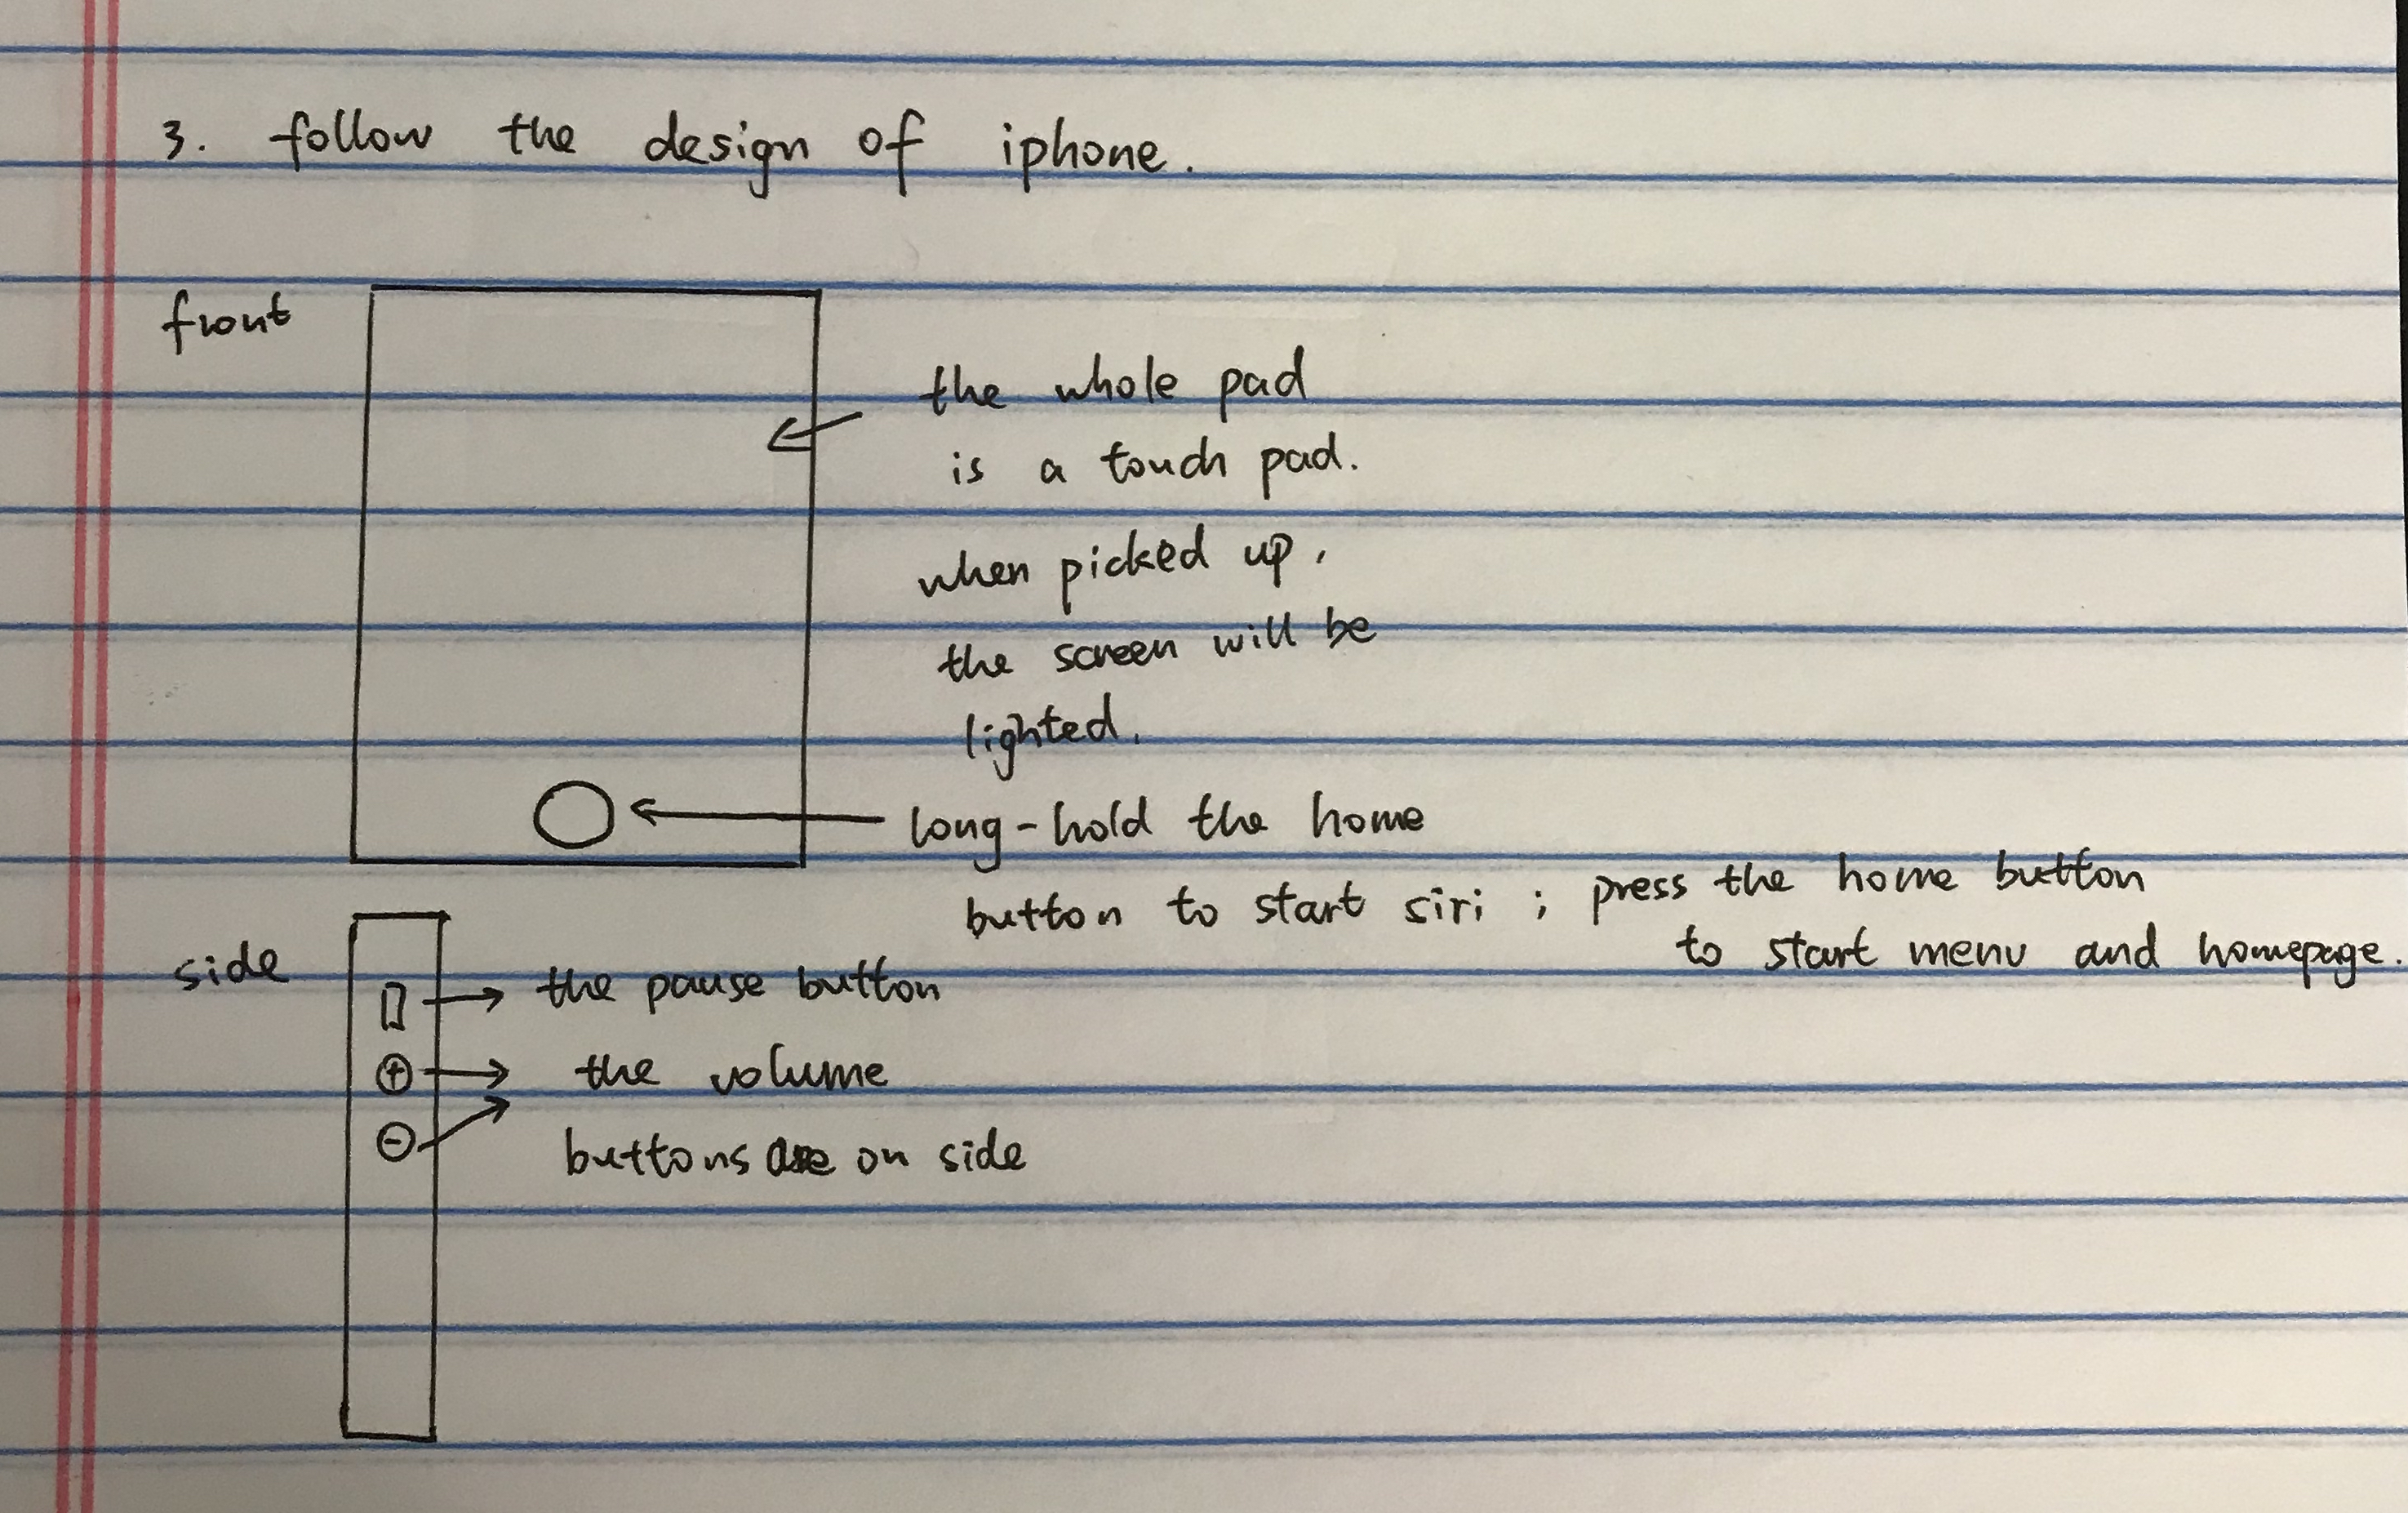 3. follow the design of iphone.
front
the whole pad
is a touch pad.
when picked up,
the screen will be
lighted.
long-hold the home
button to start siri ; press the home button
to start menu and homepage.
side
the pause button
+
the volume
-
buttons are on side